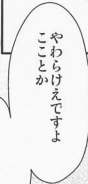 やわらけえですよ
こことか